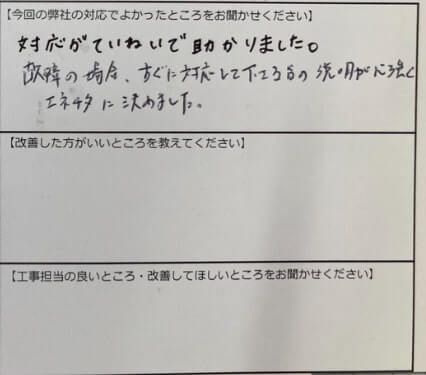 【今回の弊社の対応でよかったところをお聞かせください】
対応がていねいで助かりました。
故障の場合、すぐに対応して下さるとの説明が心強く
エネチタに決めました。
【改善した方がいいところを教えてください】
【工事担当の良いところ・改善してほしいところをお聞かせください】